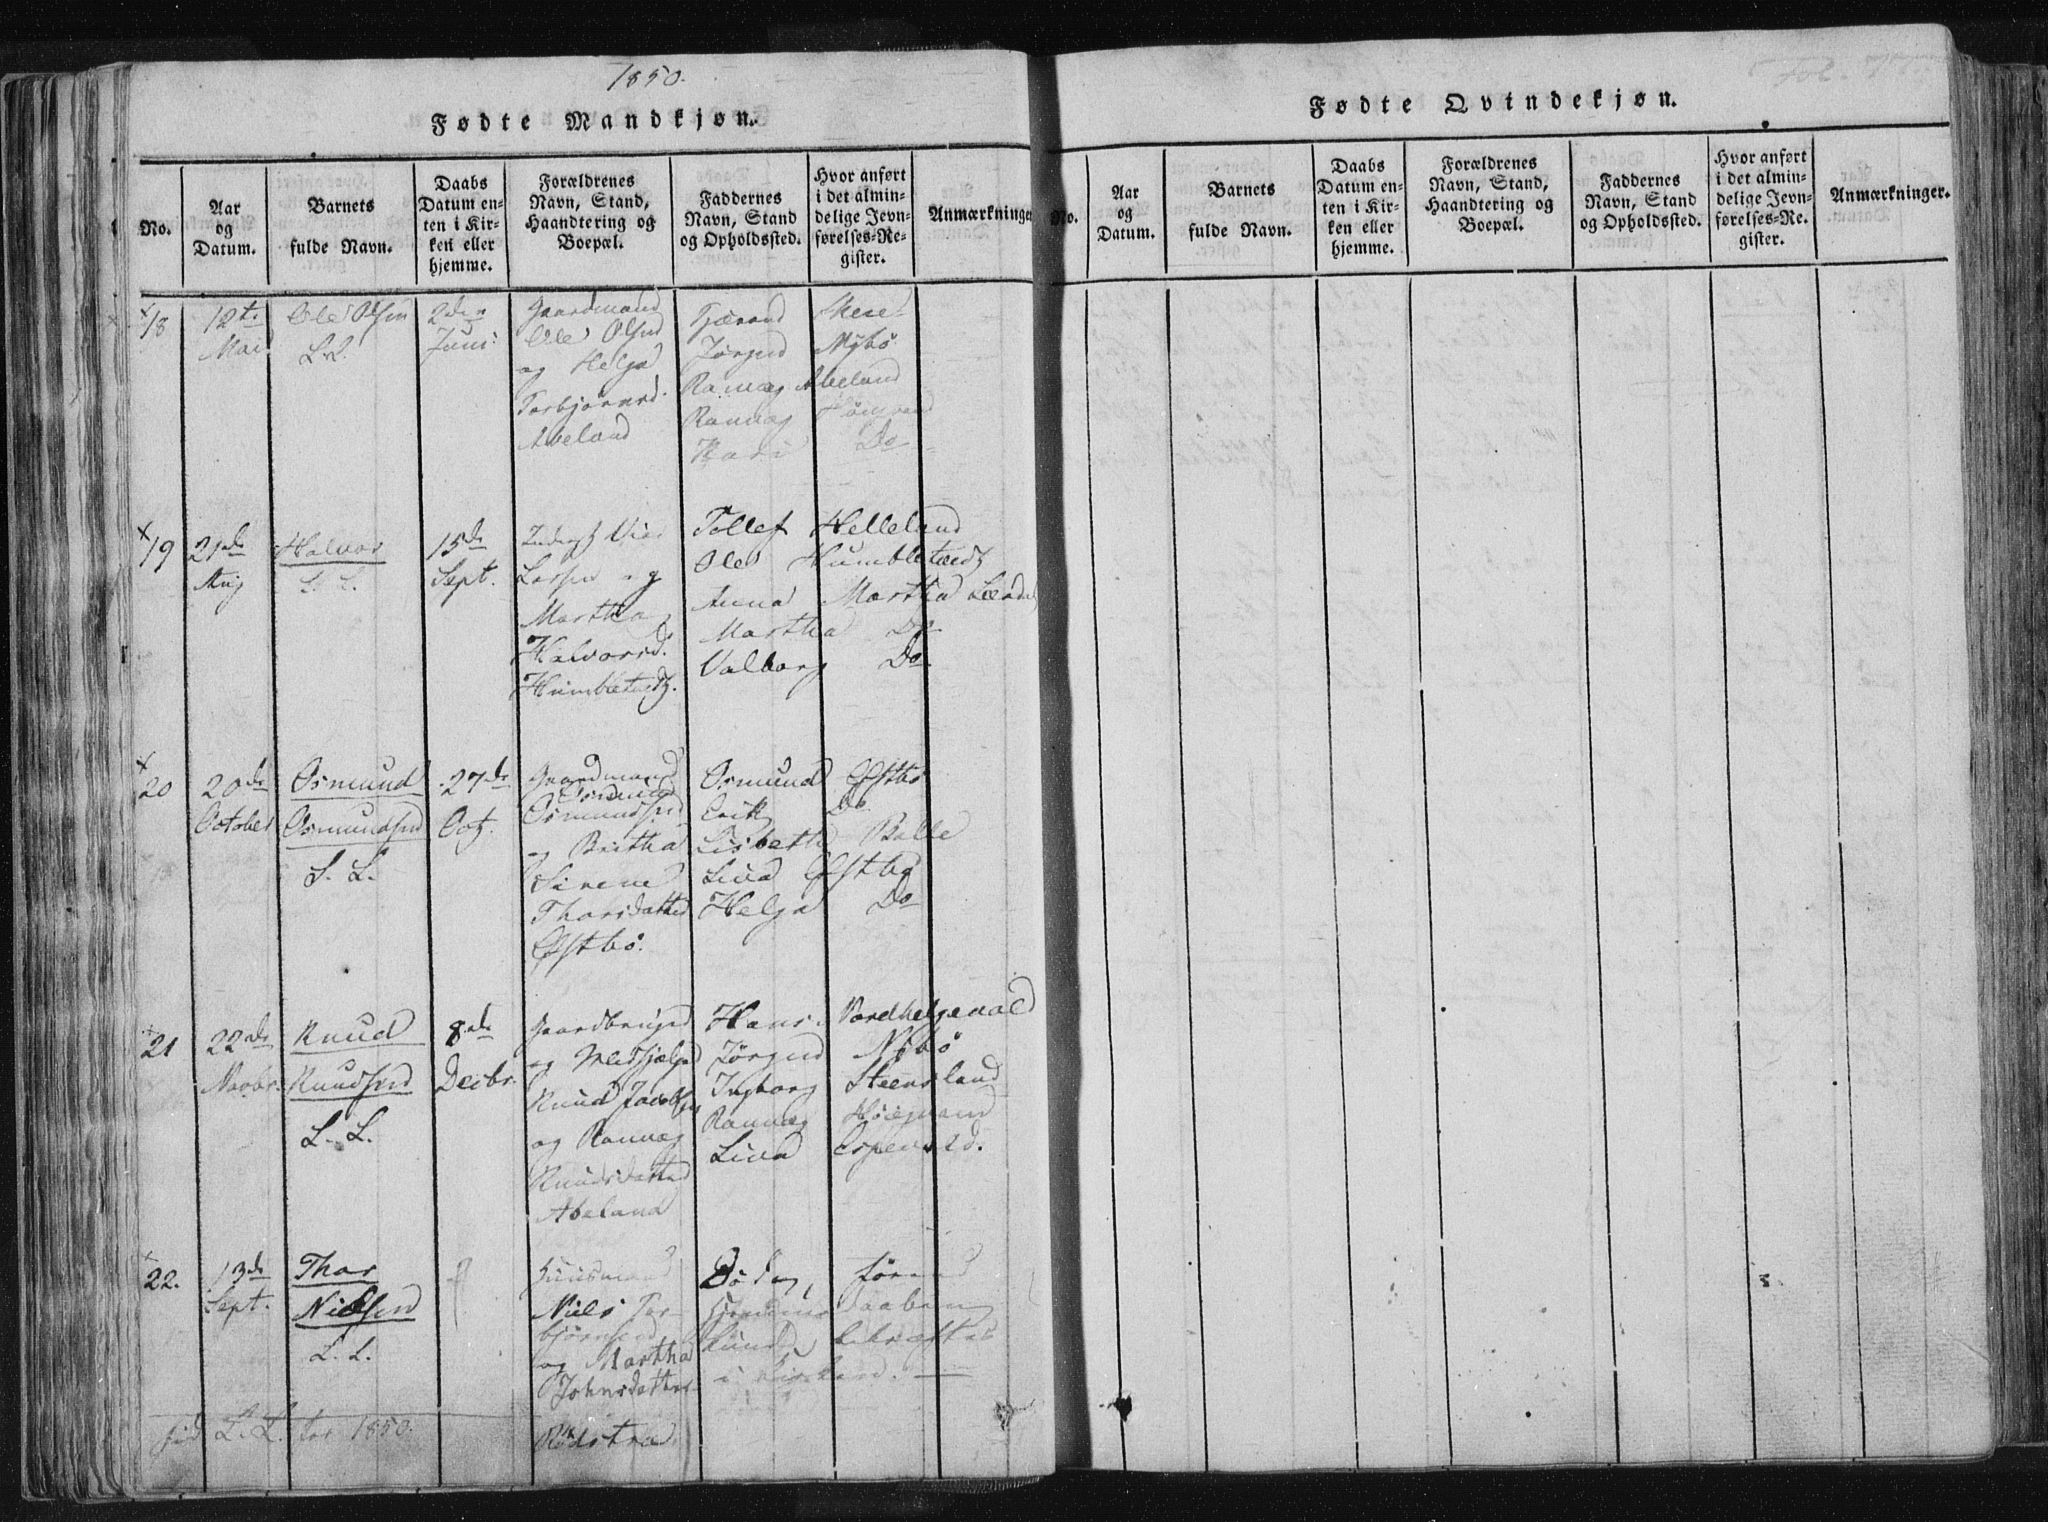 1850.
Fødte Mandkjøn.
No.
Aar
og
Datum.
Barnets
fulde Navn.
Daabs
Datum en-
ten i Kir-
ken eller
hjemme.
Forældrenes
Navn, Stand,
Haandtering og
Boepæl.
Faddernes
Navn, Stand
og Opholdssted.
Hvor anført
i det almin-
delige Jevn-
førelses-Re-
gister.
Anmærkninger
18
12te
Mai
Ole Olsen
L. L.
2den
Juni
Gaardmand
Ole Olsen
og Helga
Torbjørnsd.
Abeland
Tjærand
Jørgen Nybø
Ranvæg Abeland
Ranvæg
Kari Do
19
21de
Aug
Halvor
L. L.
15de
Sept.
Larsen og
Martha
Halvorsd.
Tollef Helleland
Ole
Anna Martha
Martha Do
Valborg Do
20
20de
October
Osmund
Osmundsen
L. L.
27de
Oct.
Gaardmand
Osmund
Osmundsen
og Britha
Sirene
Thorsdatter
Østbø.
Osmund Østbø
Erik Do
Lisbeth Balle
Liva Østbø
Helga Do
21
22de
Novbr.
Knud
Knudsen
L. L.
8de
Decbr.
Gaardbruger
og
Knud Jacobsen
og Ranvæg
Knudsdatter
Abeland
Hans
Jørgen Nybø
Ingborg Steensland
Ranvæg
Liva
22.
13de
Sept.
Thor
Nielsen
L. L.
Huusmand
Niels Tor-
bjørnsen
og Martha
Johnsdatter
Døde, førend
Hjemmedaaben
kunde bekræftes
i Kirken.
L. L. for 1850.
Fødte Qvindekjøn.
No.
Aar
og
Datum.
Barnets
fulde Navn.
Daabs
Datum en-
ten i Kir-
ken eller
hjemme.
Forældrenes
Navn, Stand,
Haandtering og
Boepæl.
Faddernes
Navn, Stand
og Opholdssted.
Hvor anført
i det almin-
delige Jevn-
førelses-Re-
gister.
Anmærkninger.